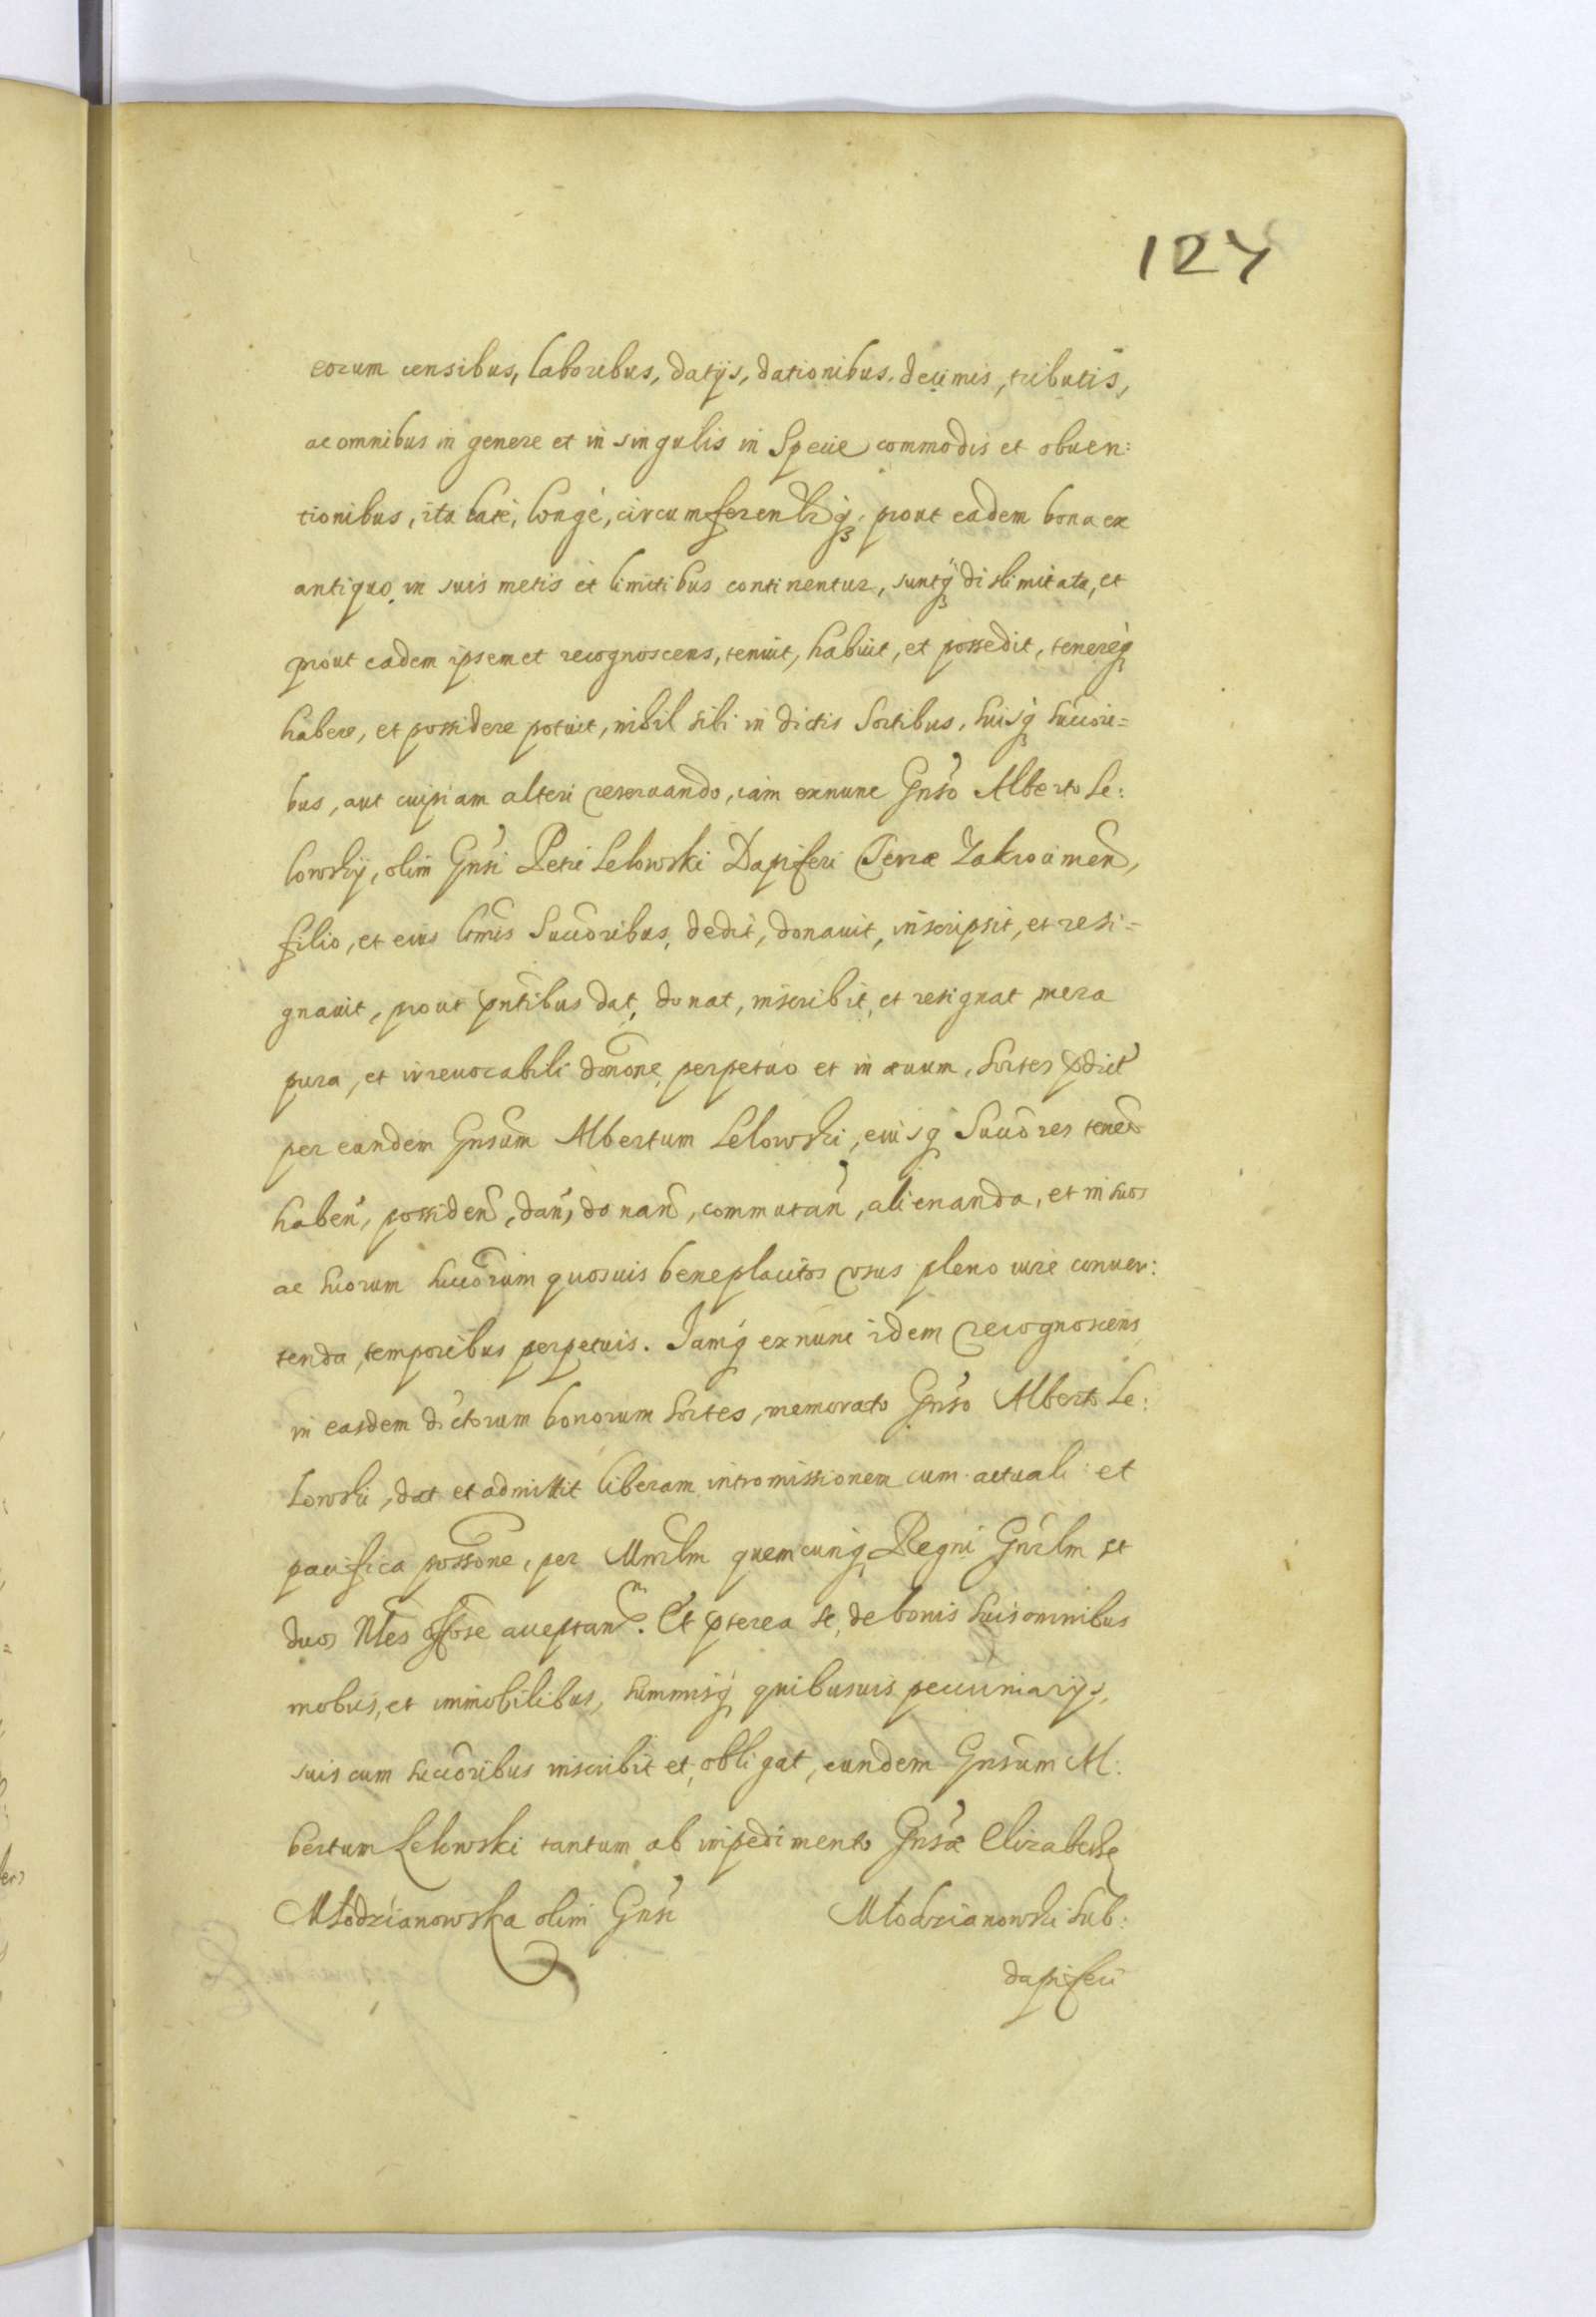 127
eorum censibus, laboribus, datijs, dationibus, decimis, tributis,
ac omnibus in genere et in singulis in Specie commodis et obuen:
tionibus, ita latè, longè, circumferentrq, prout eadem bona ex
antiquo in suis metis et limitibus continentur, suntq dislimitata, et
prout eadem ipsemet recognoscens, tenuit, habuit, et possedit, tenereq
habere, et possidere potuit, nihil sibi in dictis Sortibus, suisq succori=
bus, aut cuipiam alteri reseruando, iam exnunc Gnso Alberto Le:
lowskij, olim Gnsi Petri Lelowski Dapiferi Terræ Zakrocimen,
filio, et eius ltmis Succoribus, dedit, donauit, inscripsit, et resi=
gnauit, prout pntibus dat, donat, inscribit, et resignat mera
pura, et irreuocabili dnone, perpetuo et in æuum, Sortes pdict
per eundem Gnsum Albertum Lelowski, eiusq Succores tenen
haben, possiden, dan, donan, commutan, alienanda, et in suos
ac suorum succorum quosuis beneplacitos vsus pleno iure conuer:
tenda, temporibus perpetuis. Iamq exnunc idem recognoscens
in easdem dictorum bonorum Sortes, memorato Gnso Alberto Le:
lowski, dat et admittit liberam intromissionem cum actuali et
pacifica possone, per Mnrlm quemcunq Regni Gnrlm et
duos Nles acceptan. Et pterea se, de bonis suis omnibus
mobus, et immobilibus, summisq quibusuis pecuniarijs,
suis cum succoribus inscribit et obligat, eundem Gnsum Al:
bertum Lelowski tantum ab impedimento Gnsæ Elizabethæ
Młodzianowska olim Gnsi Młodzianowski Sub:
dapiferi